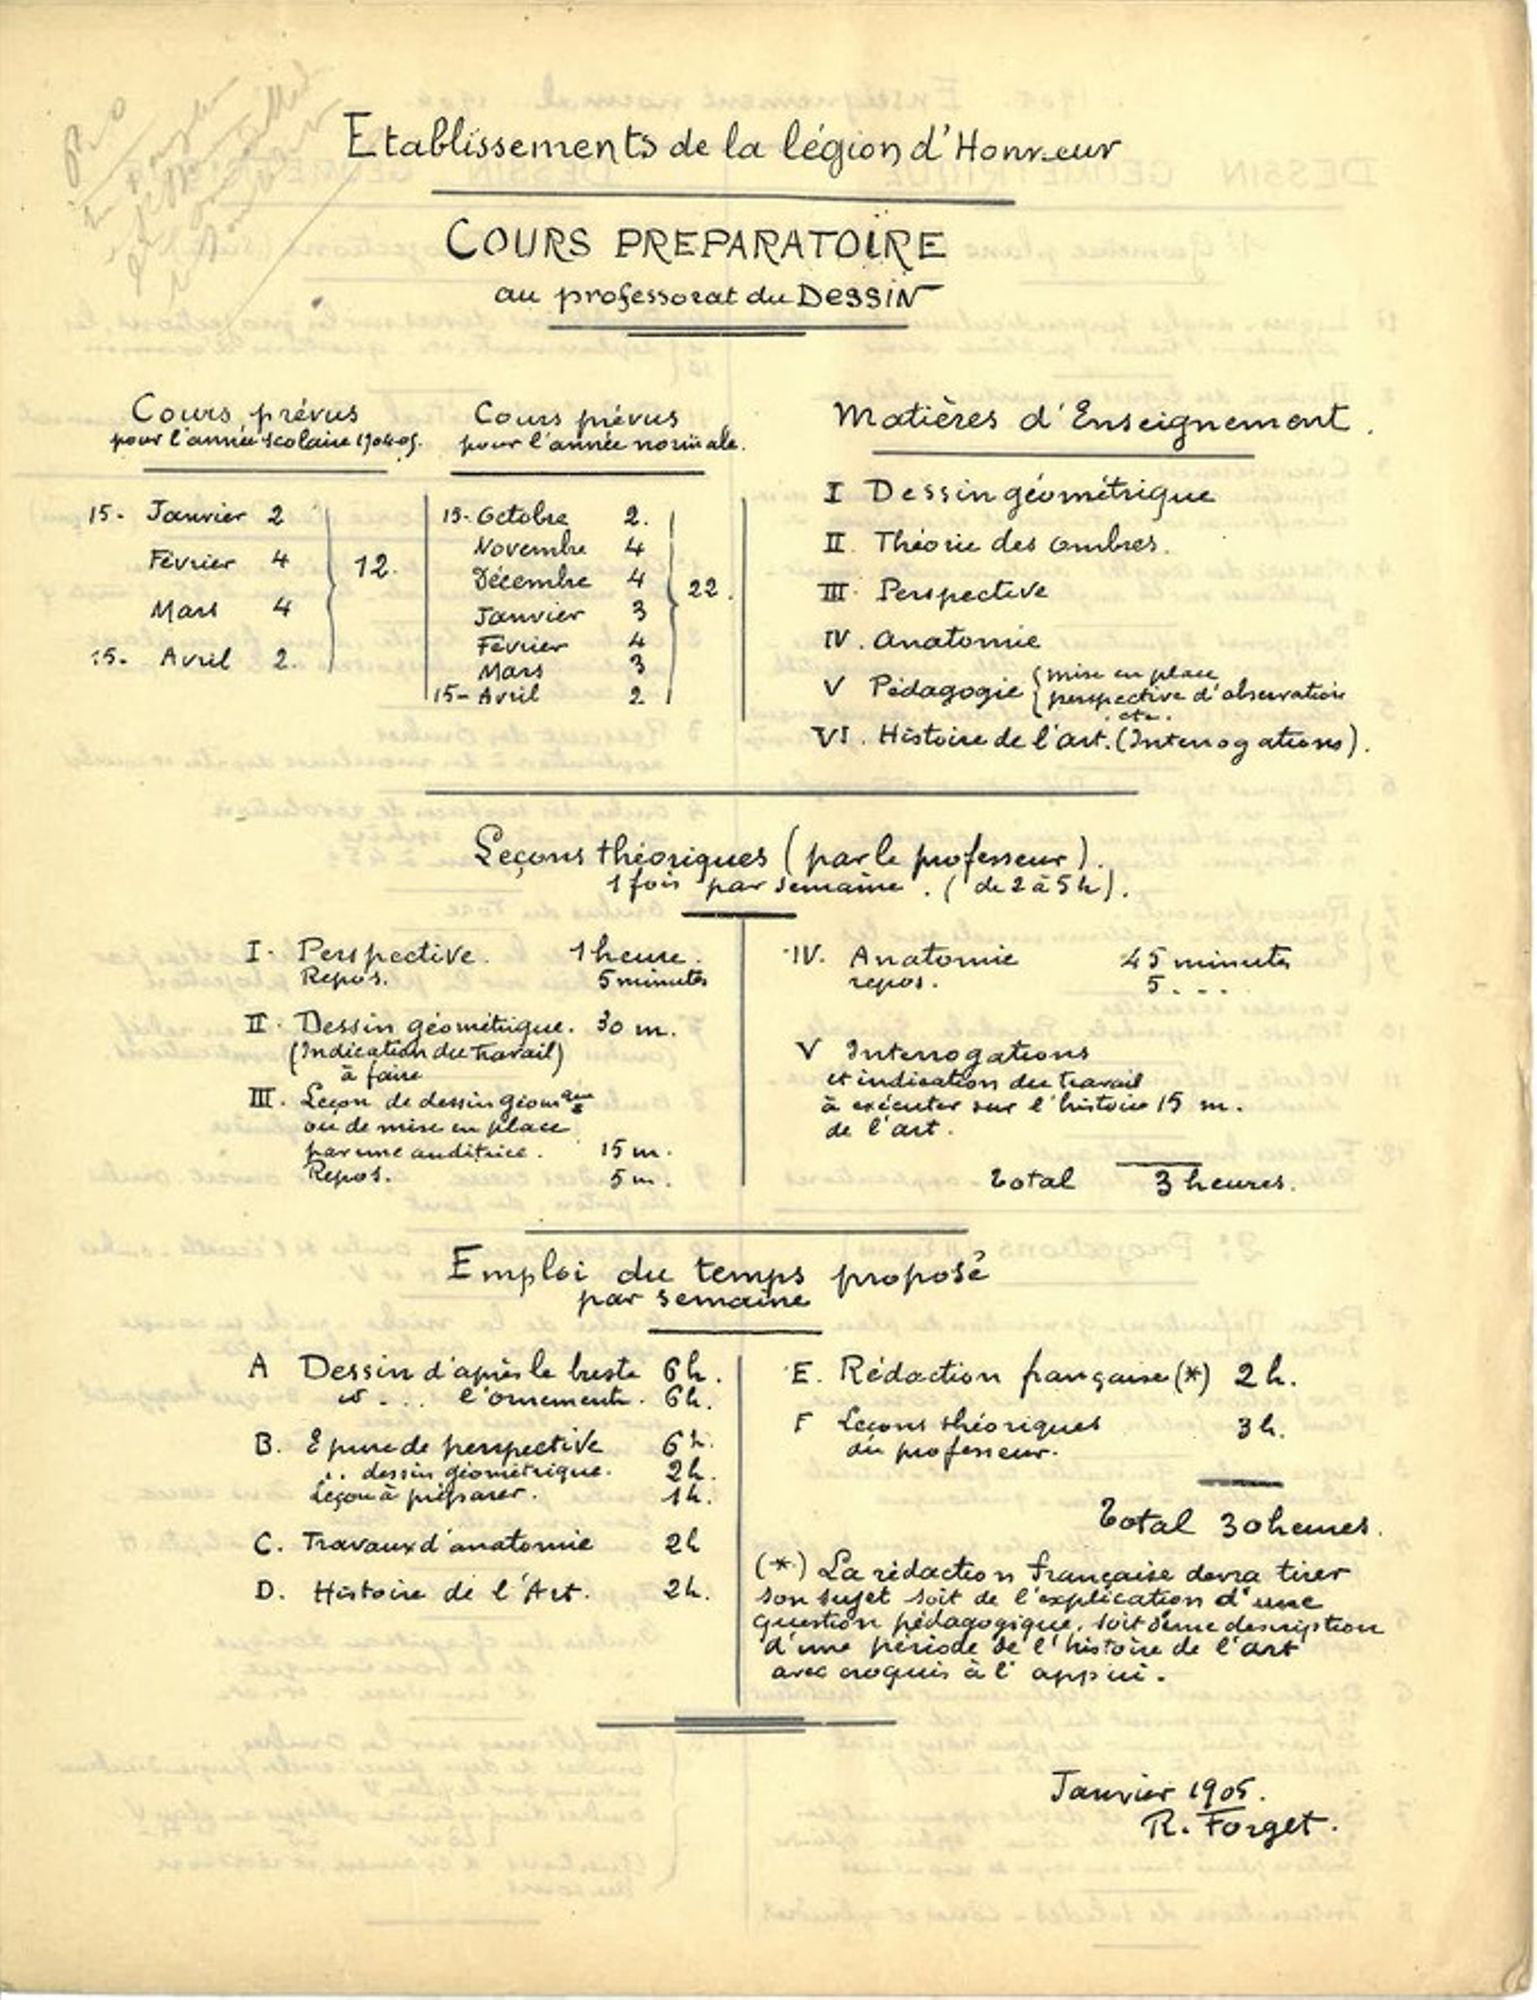 Etablissements de la légion d'Honneur
COURS PREPARATOIRE
au professorat du DESSIN
Cours prévus
pour l'année scolaire 1904-05.
15- Janvier 2
Février 4
Mars 4
15- Avril 2.
12.
Cours prévus
pour l'année normale.
15- Octobre 2.
Novembre 4
Décembre 4
Janvier 3
Février 4
Mars 3
15- Avril 2
22.
Matières d'Enseignement.
I Dessin géométrique
II Théorie des ombres.
III Perspective
IV. Anatomie
V Pédagogie { mise en place
perspective d'observation
etc.
VI. Histoire de l'art. (Interrogations).
Leçons théoriques (par le professeur).
1 fois par semaine. (de 2 à 5h).
I. Perspective. 1 heure.
Repos. 5 minutes
II. Dessin géométrique. 30 m.
(Indication du travail)
à faire
III. Leçon de dessin géomque
ou de mise en place
par une auditrice. 15 m.
Repos. 5 m.
IV. Anatomie 45 minutes
repos. 5 - - -
V Interrogations
et indication du travail
à exécuter sur l'histoire 15 m.
de l'art.
Total 3 heures.
Emploi du temps proposé
par semaine
A Dessin d'après le buste 6h.
id - .. l'ornement. 6h.
B. Epure de perspective 6h.
.. dessin géométrique. 2h.
Leçon à préparer. 1h.
C. Travaux d'anatomie 2h
D. Histoire de l'Art. 2h.
E. Rédaction française (*) 2h.
F Leçons théoriques 3h.
du professeur.
Total 30 heures.
(*) La rédaction française devra tirer
son sujet soit de l'explication d'une
question pédagogique, soit d'une description
d'une période de l'histoire de l'art
avec croquis à l'appui.
Janvier 1905.
R. Forget.